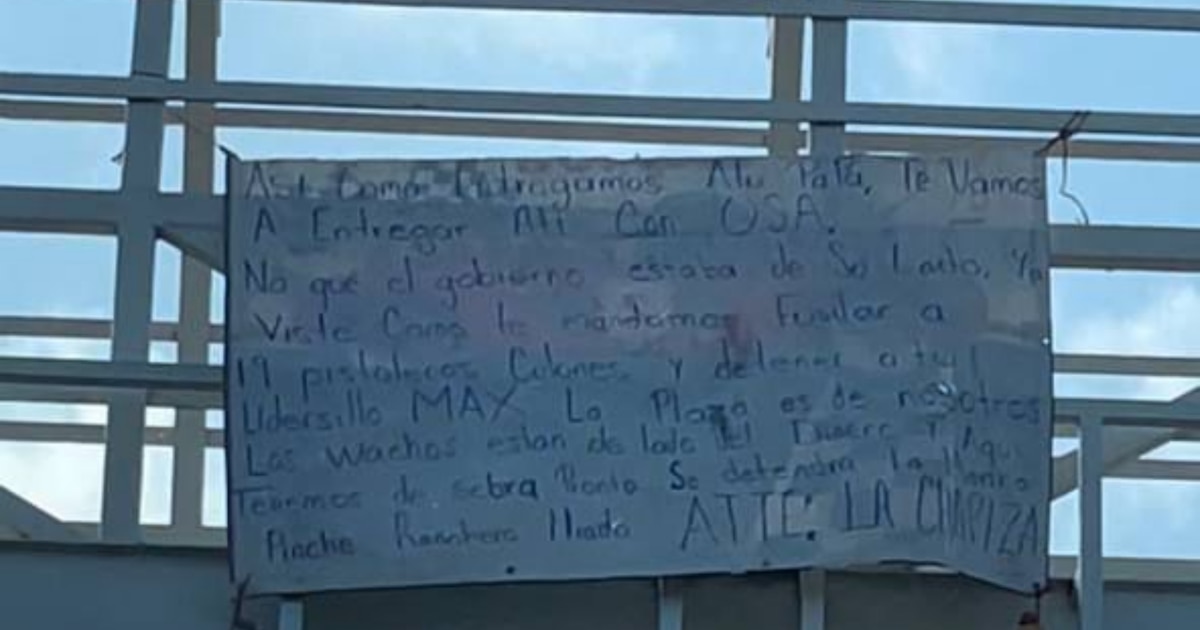 Asi Como Entregamos Atu Papá, Te Vamos
A Entregar Ati Con USA.
No que el gobierno estaba de Su Lado, Ya
Viste Como le mandamos Fusilar a
19 pistoleros Culones y detener a tu
Lidersillo MAX La Plaza es de nosotros
Los Wachos estan de lado del Dinero Y Aqui
Tenemos de sobra Pronto Se detendra la
Pinche Ranchero Miado ATTE: LA CHAPIZA